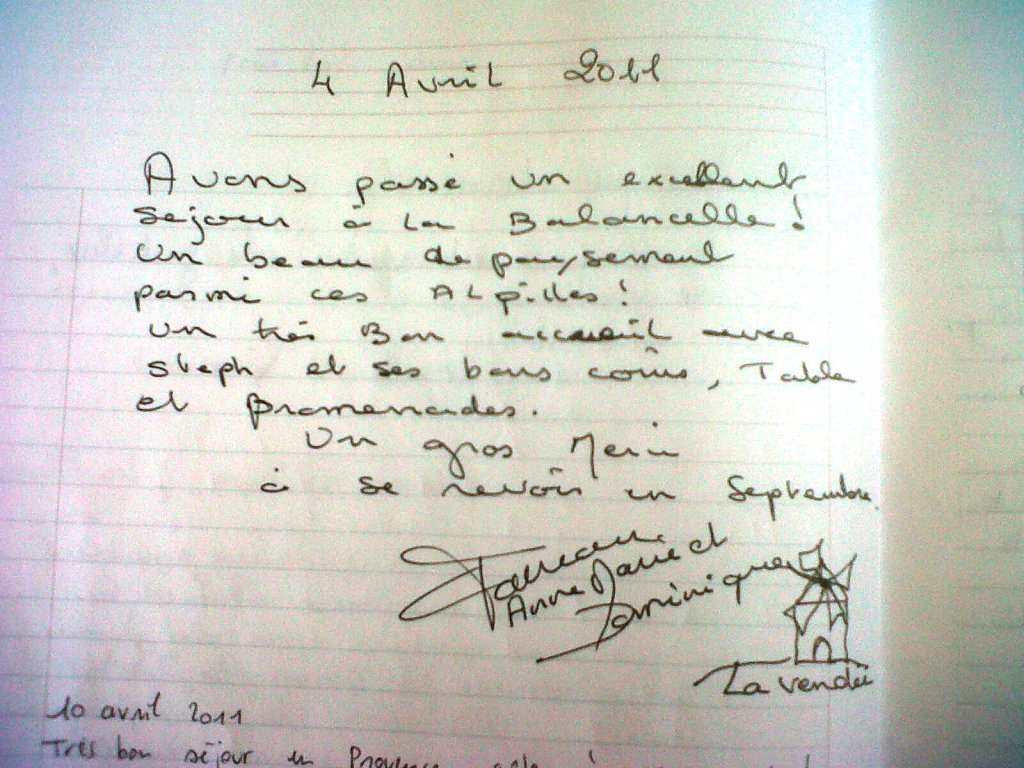 4 Avril 2011
Avons passé un excellent
séjour à la Balancelle !
un beau depaysement
parmi ces Alpilles !
un très Bon accueil avec
steph et ses bons coins, Table
et promenades.
Un gros Merci
à se revoir en Septembre.
Anne Marie et
Dominique
La vendée
10 avril 2011
Très bon séjour en Provence